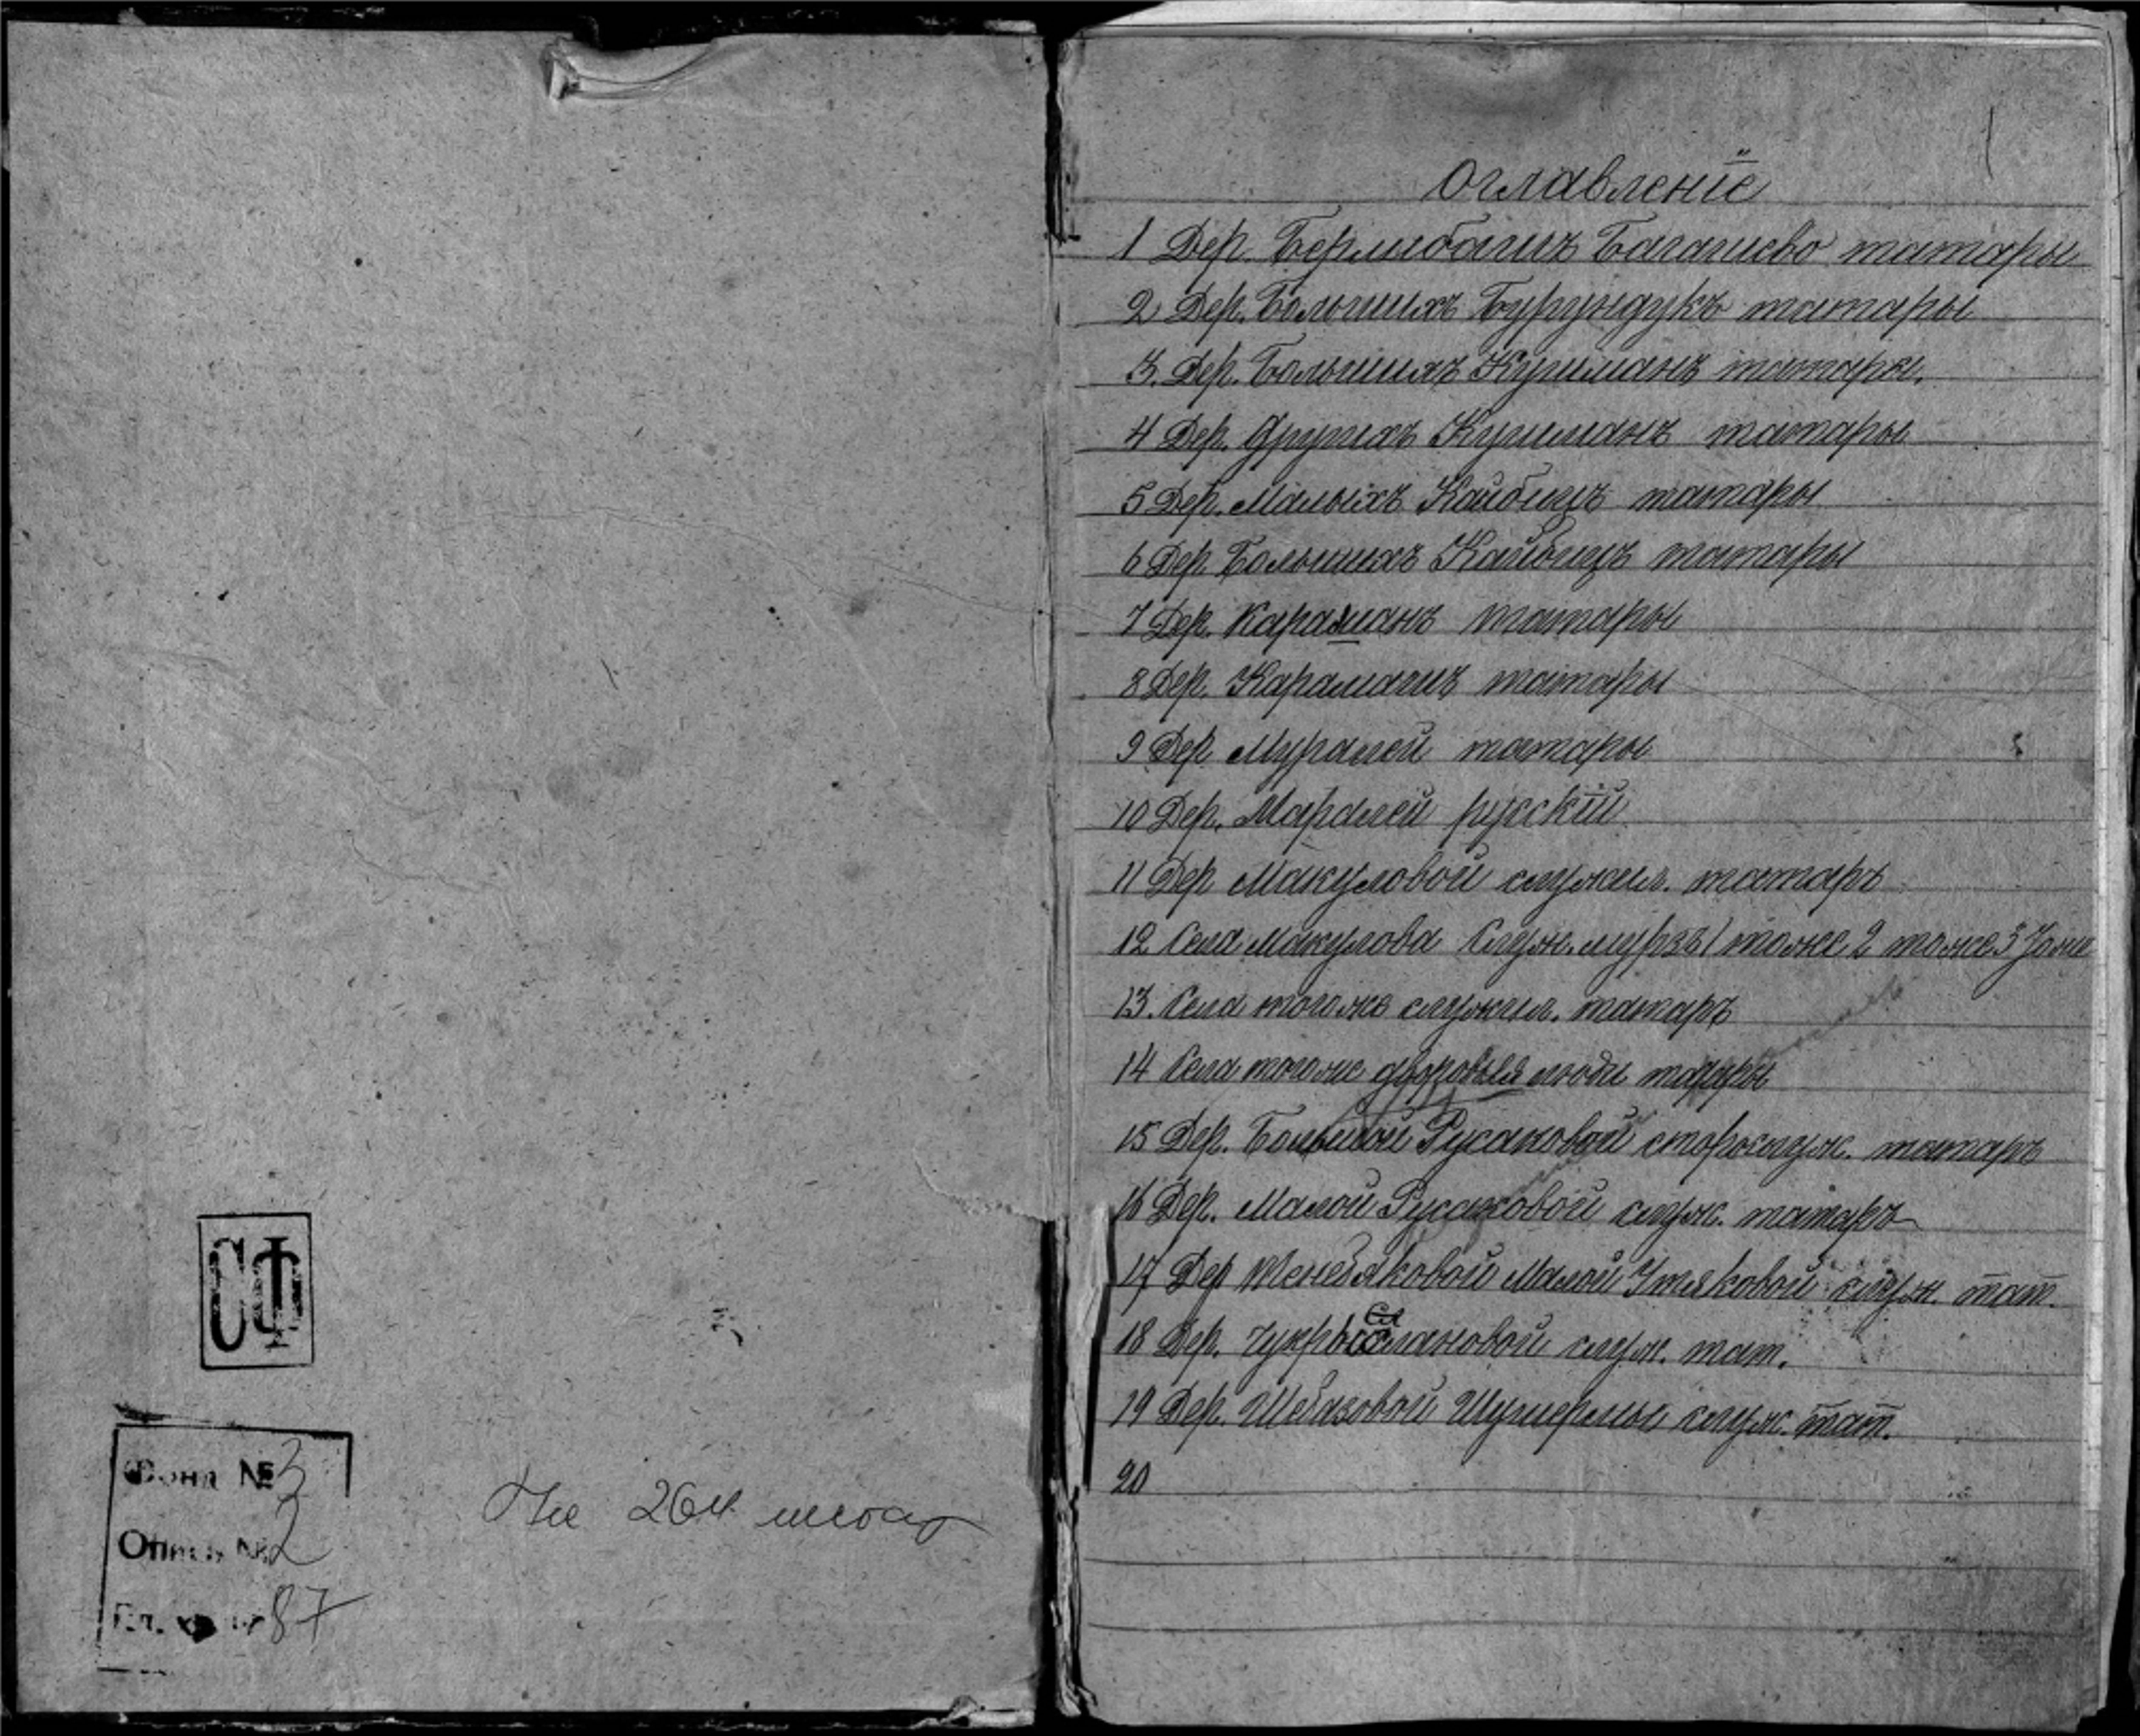 СФ
Фонд № 3
Опись № 2
Ед. хр. № 87
На 264 листах
1
Оглавленіе
1 Дер. Берлибашъ Багашево татары
2 Дер. Большихъ Бурундукъ татары
3. Дер. Большихъ Кушманъ татары.
4 Дер. Другихъ Кушманъ татары
5 Дер. Малыхъ Кайбицъ татары
6 Дер Большихъ Кайбицъ татары
7 Дер. Карашанъ татары
8 Дер. Карашашъ татары
9 Дер Муралей татары
10 Дер. Маралей русскій
11 Дер Макуловой служил. татаръ
12 Села Макулова Служ. мурзъ 1 тоже 2 тоже 3
13. Села тогоже служил. татаръ
14 Села тогоже дворовыя люди татары
15 Дер. Большой Русаковой старослуж. татаръ
16 Дер. Малой Русаковой служ. татаръ
17 Дер Тенебяковой Малой Утяковой служ. тат.
18 Дер. лановой служ. тат.
19 Дер. Шебазовой Шушермы служ. тат.
20